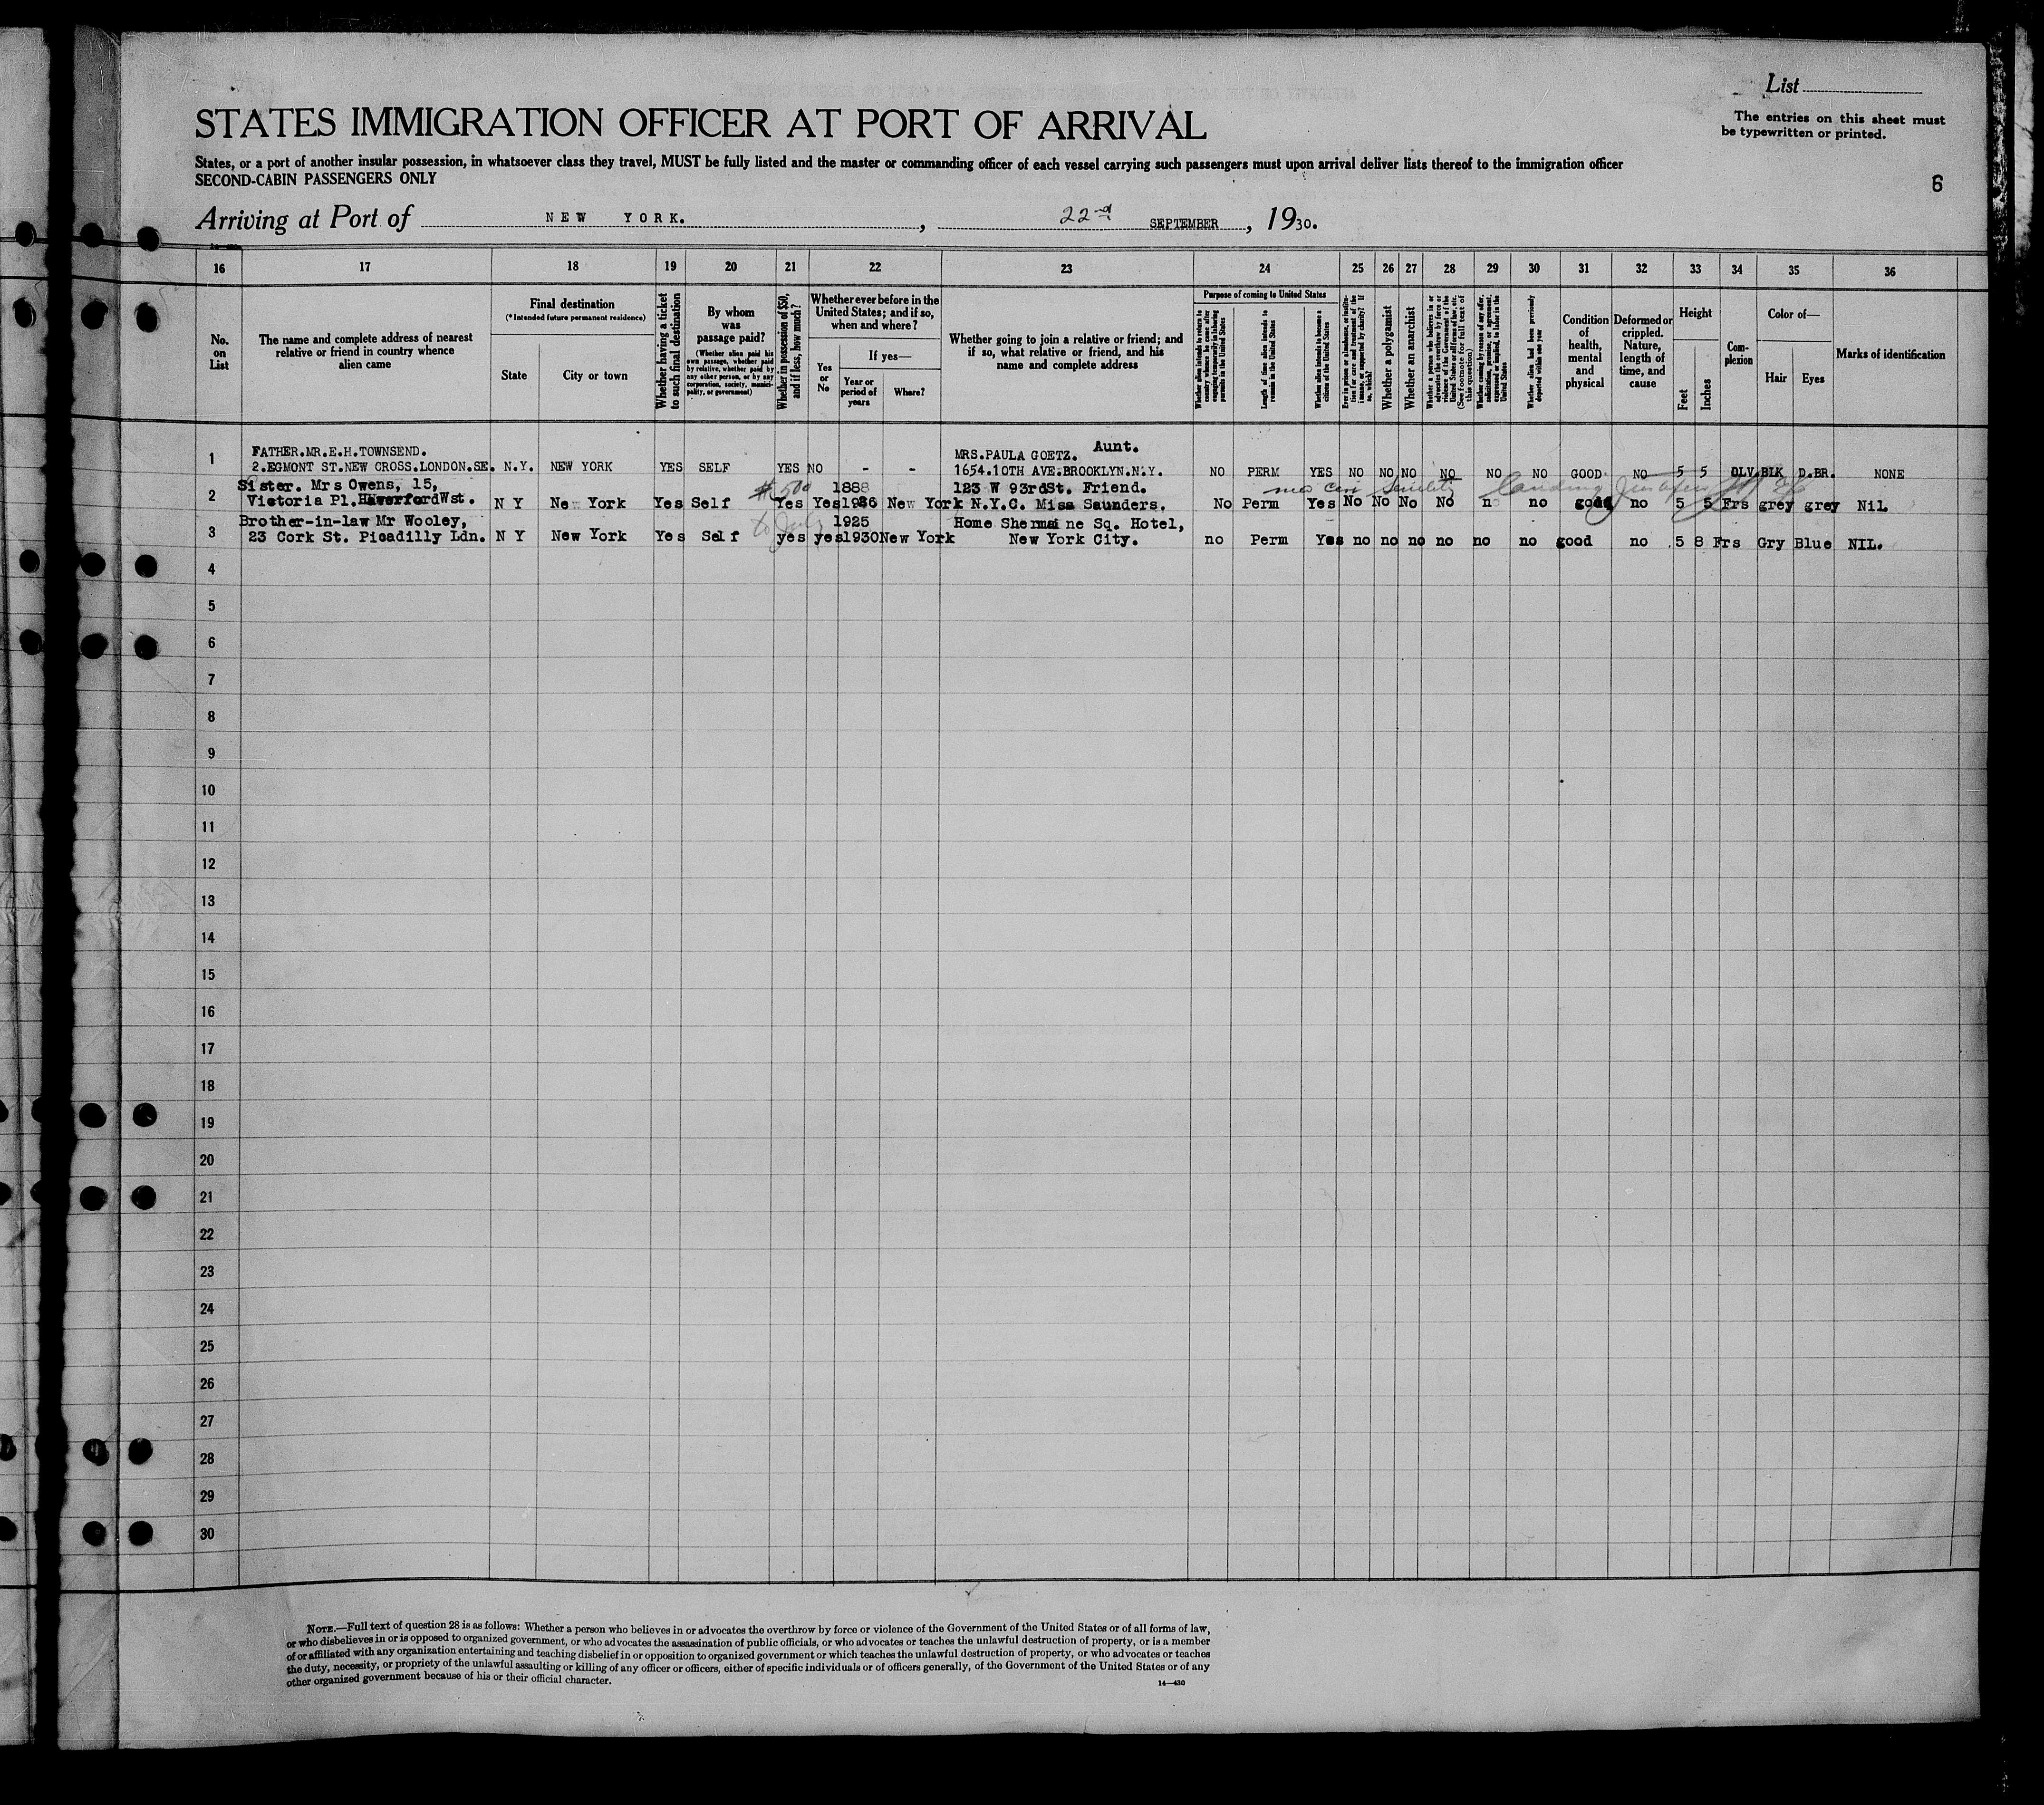 List
STATES IMMIGRATION OFFICER AT PORT OF ARRIVAL
The entries on this sheet must
be typewritten or printed.
States, or a port of another insular possession, in whatsoever class they travel, MUST be fully listed and the master or commanding officer of each vessel carrying such passengers must upon arrival deliver lists thereof to the immigration officer
SECOND-CABIN PASSENGERS ONLY
6
Arriving at Port of NEW YORK. , 22nd SEPTEMBER , 1930.
16 17 18 19 20 21 22 23 24 25 26 27 28 29 30 31 32 33 34 35 36
No.
on
List
The name and complete address of nearest
relative or friend in country whence
alien came
Final destination
(*Intended future permanent residence)
State
City or town
Whether having a ticket
to such final destination
By whom
was
passage paid?
(Whether alien paid his
own passage, whether paid
by relative, whether paid by
any other person, or by any
corporation, society, munici-
pality, or government)
Whether in possession of $50,
and if less, how much?
Whether ever before in the
United States; and if so,
when and where?
Yes
or
No
If yes—
Year or
period of
years
Where?
Whether going to join a relative or friend; and
if so, what relative or friend, and his
name and complete address
Purpose of coming to United States
Whether alien intends to return to
country whence he came after
engaging temporarily in laboring
pursuits in the United States
Length of time alien intends to
remain in the United States
Whether alien intends to become a
citizen of the United States
Ever in prison or almshouse, or institu-
tion for care and treatment of the
insane, or supported by charity? If
so, which?
Whether a polygamist
Whether an anarchist
Whether a person who believes in or
advocates the overthrow by force or
violence of the Government of the
United States or all forms of law, etc.
(See footnote for full text of
this question)
Whether coming by reason of any offer,
solicitation, promise, or agreement,
expressed or implied, to labor in the
United States
Whether alien had been previously
deported within one year
Condition
of
health,
mental
and
physical
Deformed or
crippled.
Nature,
length of
time, and
cause
Height
Feet
Inches
Com-
plexion
Color of—
Hair
Eyes
Marks of identification
1 FATHER.MR.E.H.TOWNSEND. MRS.PAULA GOETZ. Aunt.
2.EGMONT ST.NEW CROSS.LONDON.SE. N.Y. NEW YORK YES SELF YES NO - - 1654.10TH AVE.BROOKLYN.N.Y. NO PERM YES NO NO NO NO NO NO GOOD NO 5 5 OLV. BLK D.BR. NONE
2 Sister. Mrs Owens, 15, $500 1888 123 W 93rdSt. Friend. senility
Victoria Pl.HaverfordWst. N Y New York Yes Self Yes Yes 1926 New York N.Y.C. Miss Saunders. No Perm Yes No No No No n no good no 5 5 Frs grey grey Nil
3 Brother-in-law Mr Wooley, 1925 Home Shermaine Sq. Hotel,
23 Cork St. Picadilly Ldn. N Y New York Yes Self yes yes 1930 New York New York City. no Perm Yes no no no no no no good no 5 8 Frs Gry Blue NIL.
4
5
6
7
8
9
10
11
12
13
14
15
16
17
18
19
20
21
22
23
24
25
26
27
28
29
30
NOTE.—Full text of question 28 is as follows: Whether a person who believes in or advocates the overthrow by force or violence of the Government of the United States or of all forms of law,
or who disbelieves in or is opposed to organized government, or who advocates the assassination of public officials, or who advocates or teaches the unlawful destruction of property, or is a member
of or affiliated with any organization entertaining and teaching disbelief in or opposition to organized government or which teaches the unlawful destruction of property, or who advocates or teaches
the duty, necessity, or propriety of the unlawful assaulting or killing of any officer or officers, either of specific individuals or of officers generally, of the Government of the United States or of any
other organized government because of his or their official character.
14—430